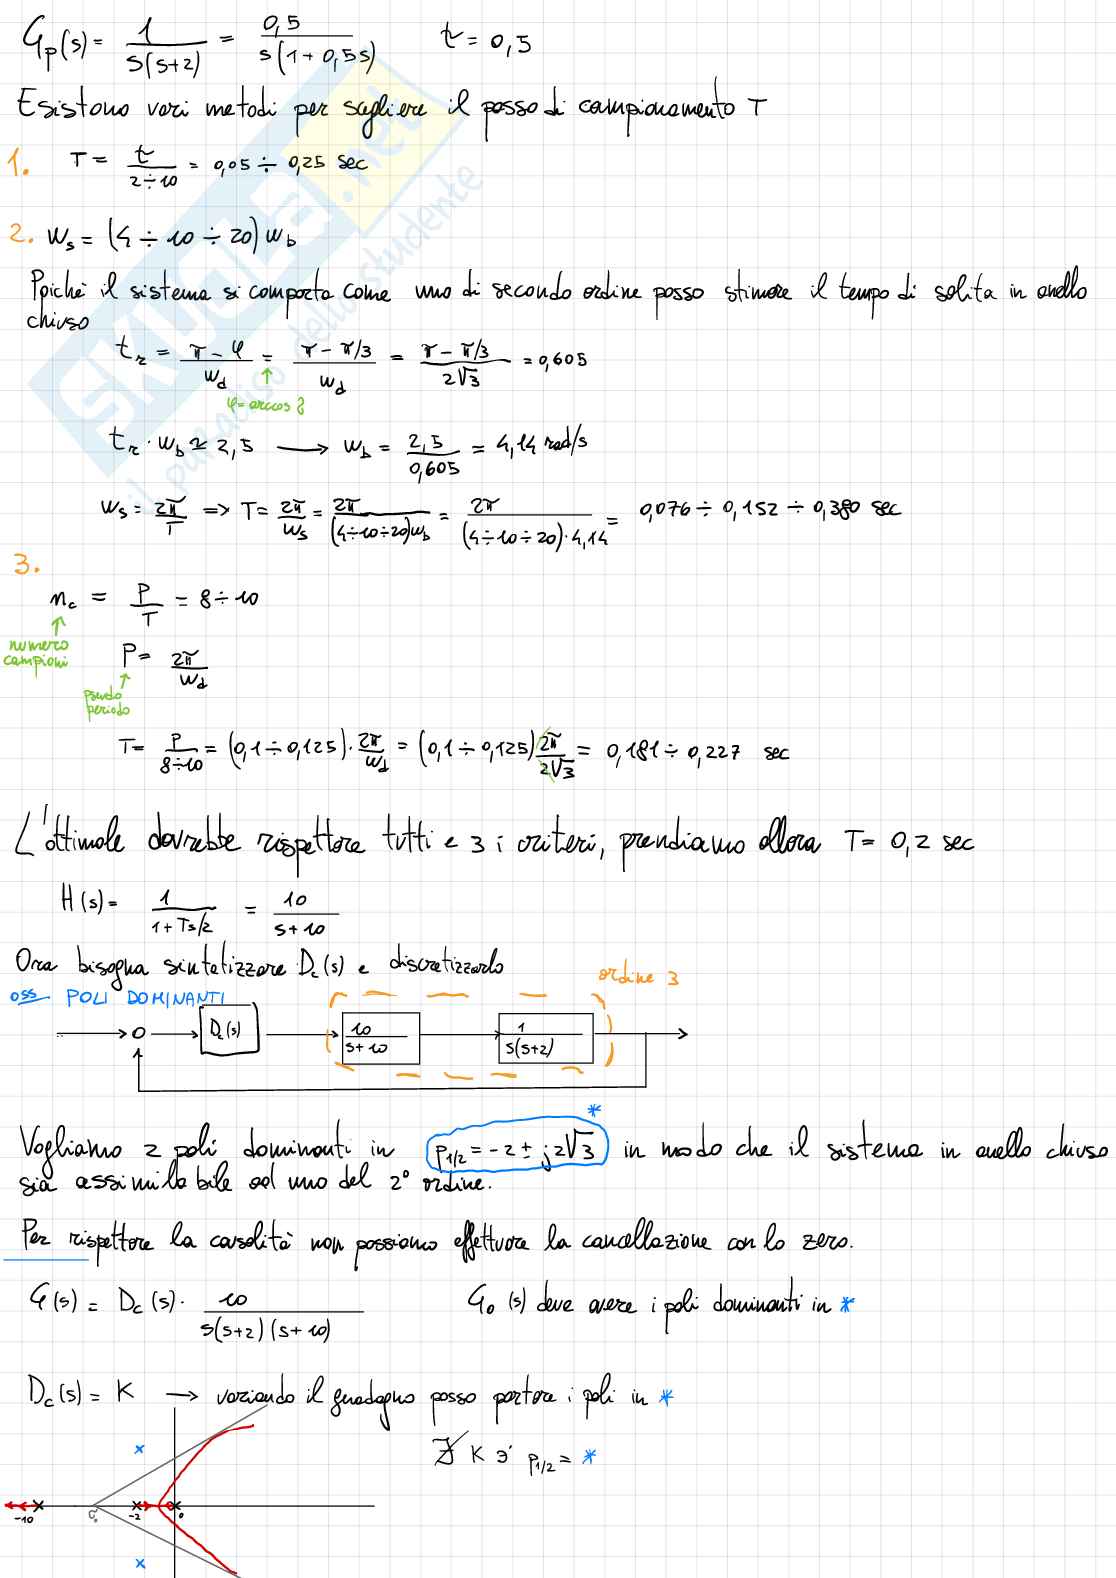 Gp(s) = 1/(s(s+2)) = 0,5/(s(1+0,5s)) τ = 0,5
Esistono vari metodi per scegliere il passo di campionamento T
1. T = τ/(2÷10) = 0,05 ÷ 0,25 sec
2. Ws = (4 ÷ 10 ÷ 20) Wb
Poiché il sistema si comporta come uno di secondo ordine posso stimare il tempo di salita in anello
chiuso
tr = (π - φ)/Wd = (π - π/3)/Wd = (π - π/3)/(2√3) = 0,605
φ = arccos δ
tr · Wb ≃ 2,5 → Wb = 2,5/0,605 = 4,14 rad/s
Ws = 2π/T => T = 2π/Ws = 2π/((4÷10÷20)Wb) = 2π/((4÷10÷20)·4,14) = 0,076 ÷ 0,152 ÷ 0,380 sec
3.
nc = P/T = 8 ÷ 10
numero
campioni
P = 2π/Wd
pseudo
periodo
T = P/(8÷10) = (0,1 ÷ 0,125) · 2π/Wd = (0,1 ÷ 0,125) 2π/(2√3) = 0,181 ÷ 0,227 sec
L'ottimale dovrebbe rispettare tutti e 3 i criteri, prendiamo allora T = 0,2 sec
H(s) = 1/(1+Ts/2) = 10/(s+10)
Ora bisogna sintetizzare Dc(s) e discretizzarlo
ordine 3
oss POLI DOMINANTI
Dc(s)
10/(s+10)
1/(s(s+2))
Vogliamo 2 poli dominanti in p1/2 = -2 ± j2√3 * in modo che il sistema in anello chiuso
sia assimilabile ad uno del 2° ordine.
Per rispettare la causalità non possiamo effettuare la cancellazione con lo zero.
G(s) = Dc(s) · 10/(s(s+2)(s+10)) G0(s) deve avere i poli dominanti in *
Dc(s) = K → variando il guadagno posso portare i poli in *
∄ K ∋' p1/2 = *
-10 -2 0
SKUOLA.net
il paradiso dello studente